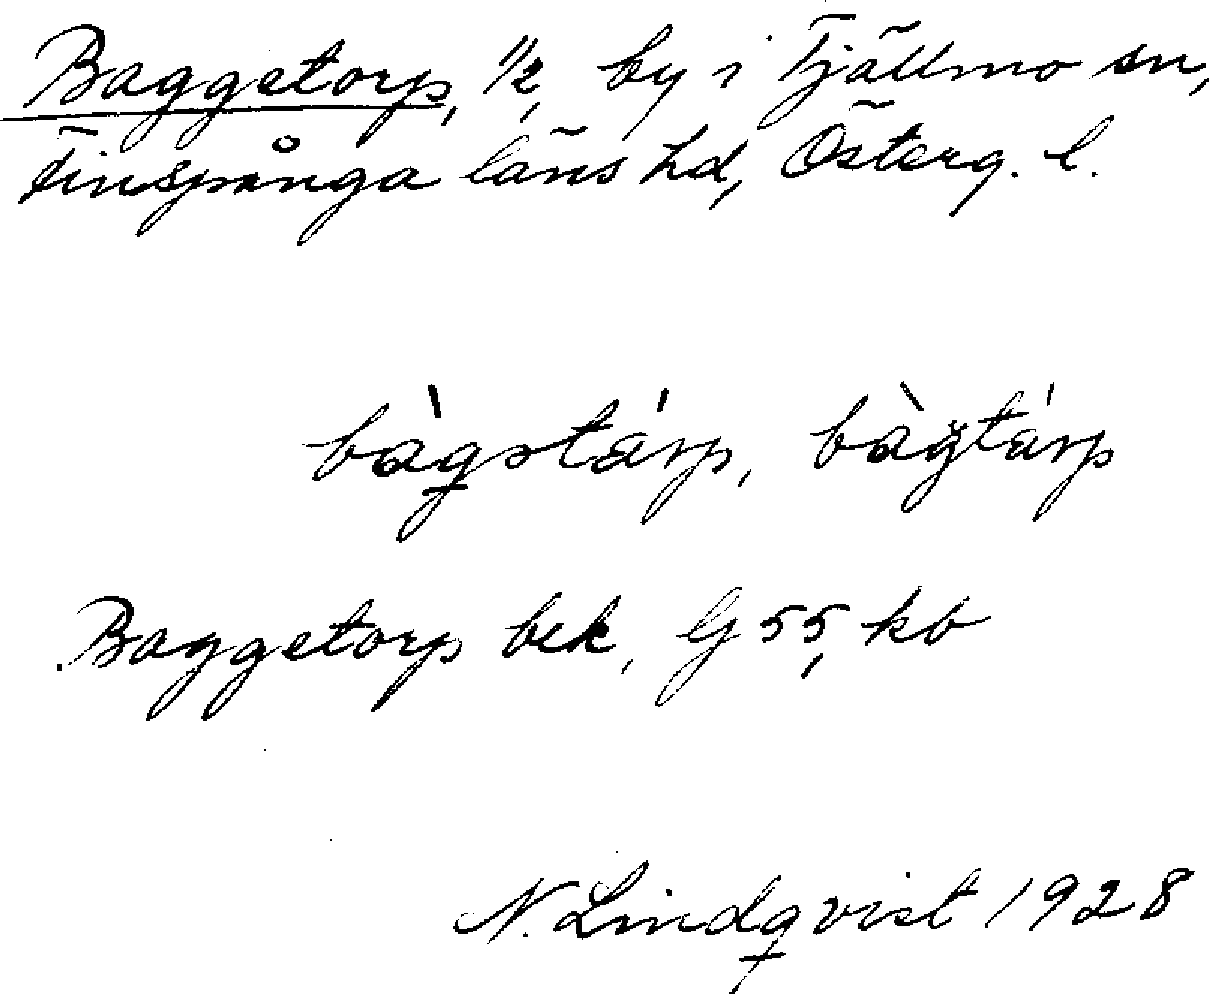 Baggetorp, 1/2, by i Tjällmo sn,
Finspånga läns hd, Österg. l.
bàgstárp, bàgtárp
Baggetorp bek, Gj 55, kb
N. Lindqvist 1928